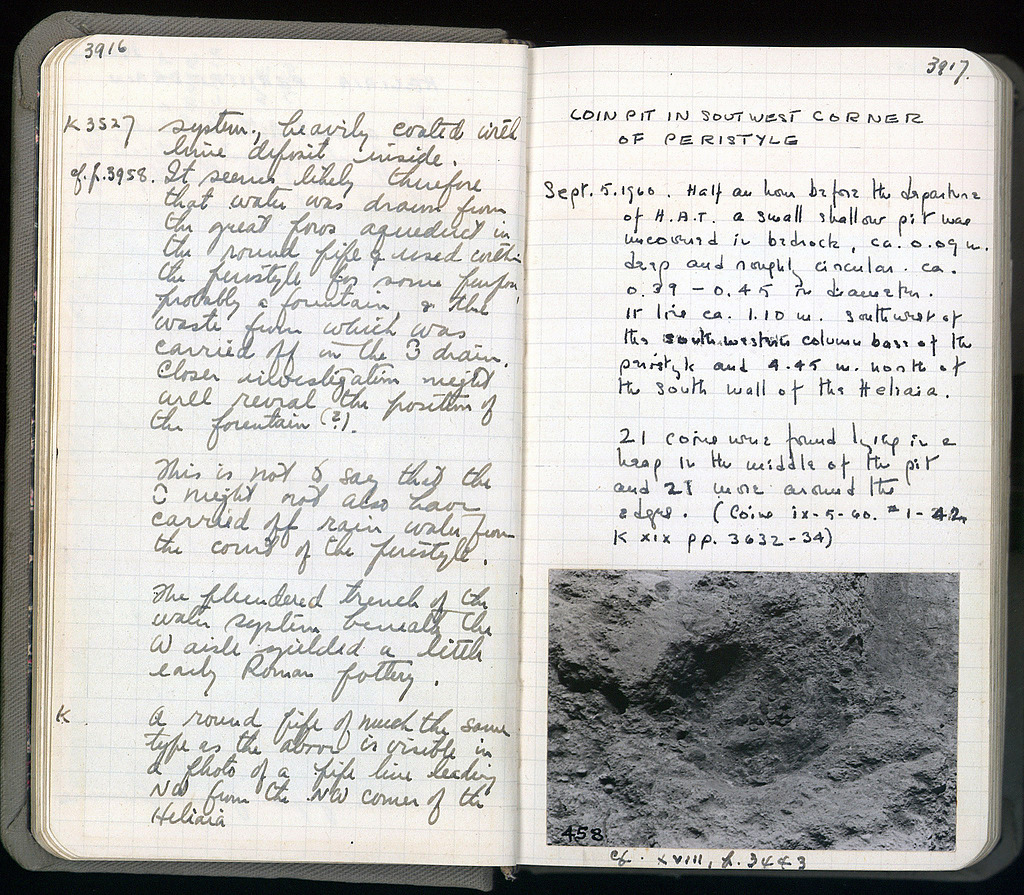 3916
K 3527 system, heavily coated with
lime deposit inside.
cf. p. 3958. It seems likely therefore
that water was drawn from
the great poros aqueduct in
the round pipe & used within
the peristyle for some purpose,
probably a fountain & the
waste from which was
carried off in the drain.
Closer investigation might
well reveal the position of
the fountain (?).
This is not to say that the
might not also have
carried off rain water from
the court of the peristyle.
The plundered trench of the
water system beneath the
W aisle yielded a little
early Roman pottery.
K A round pipe of much the same
type as the above is visible in
a photo of a pipe line leading
NW from the NW corner of the
Heliaia
3917.
COIN PIT IN SOUTWEST CORNER
OF PERISTYLE
Sept. 5. 1960. Half an hour before the departure
of H.A.T. a small shallow pit was
uncovered in bedrock, ca. 0.09 m.
deep and roughly circular. ca.
0.39 - 0.45 in diameter.
It lies ca. 1.10 m. southwest of
the southwestern column base of the
peristyle and 4.45 m. north of
the south wall of the Heliaia.
21 coins were found lying in a
heap in the middle of the pit
and 21 more around the
edges. (Coins ix-5-60. #1-42
K xix pp. 3632-34)
458
cf. xviii, p. 3443